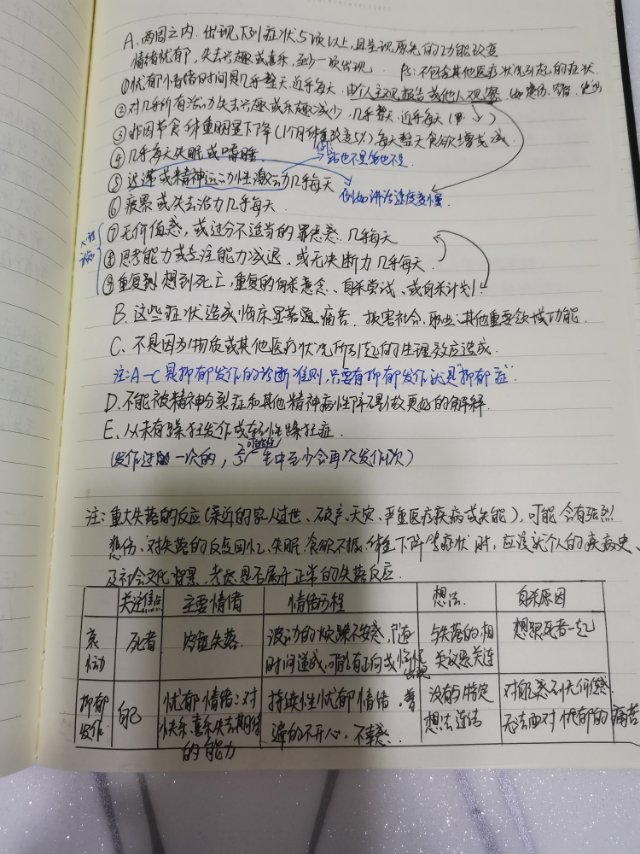 A. 两周之内. 出现下列症状5项以上, 且呈现原先的功能改变
情绪忧郁, 失去兴趣或喜乐, 至少一次出现. Ps: 不包含其他医疗状况引起的症状
①忧郁心情绪时间是几乎整天. 近乎每天. 由个人主观报告或他人观察.
②对几乎所有活动失去兴趣或乐趣减少, 几乎整天. 近乎每天
③非因节食体重明显下降(1个月体重改变5%)每天整天食欲增或减
④几乎每天失眠或嗜睡. 站也不是坐也不是.
⑤迟滞或精神运动性激动几乎每天 例如讲话速度变慢
⑥疲累或失去活力几乎每天.
⑦无价值感, 或过分不适当的罪恶感. 几乎每天
⑧思考能力或专注能力减退, 或无决断力几乎每天.
⑨重复想到死亡, 重复的自杀意念、自杀尝试、或自杀计划
B. 这些症状造成临床显著 痛苦. 损害社会、职业、其他重要领域功能.
C. 不是因为物质或其他医疗状况所引起的生理效应造成.
注: A-C是抑郁发作的诊断准则, 只要有抑郁发作就是"抑郁症"
D. 不能被精神分裂症和其他精神病性障碍做更好的解释.
E. 从未有躁狂发作或轻躁狂症.
(发作过 一次的, 生中至少会再次发作1次)
注: 重大失落的反应(亲近的家人过世、破产、天灾、严重医疗疾病或失能), 可能会有强烈
悲伤、对失落的反刍回忆、失眠、食欲不振、体重下降等症状时, 应 个人的疾病史、
及社会文化背景. 考虑是否属于正常的失落反应.
关注焦点 主要情绪 情绪历程 想法. 自杀原因
哀恸 死者 空虚失落. 波动的烦躁不安感, 随时间递减, 可能有正向或 与失落的相关议题关连 想跟死者一起
抑郁发作 自己 忧郁情绪: 对快乐、喜乐失去期待的能力 持续性忧郁情绪, 普遍的不开心, 不幸感. 没有与特定想法连结 对自己感到无价值感 无法面对忧郁的痛苦